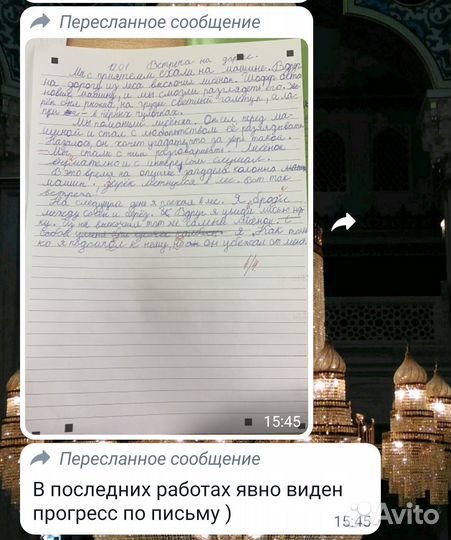 Пересланное сообщение
12.01 Встреча на дороге.
Мы с приятелем ехали на машине. Вдруг
на дорогу из леса выскочил лисёнок. Шофёр оста
новил машину, и мы смогли разглядеть его. Зве
рёк был рыжий, на груди светлый галстук, а ла
пки в чёрных чулочках.
Мы поманили лисёнка. Он сел перед ма-
шиной и стал с любопытством её разглядывать
Казалось, он хочет угадать, что за зверь такой.
Мы стали с ним разговаривать. Лисёнок
внимательно и с интересом слушал.
В это время на опушке загудела колонна
машин. Зверёк метнулся в лес. Вот так
встреча!
На следующий день я поехал в лес. Я бродил
между сосен и берёз. Вдруг я увидел лисью но
ру. Из неё выскочил тот же самый лисёнок.
я. Как толь
ко я подошёл к нему, он убежал от меня.
15:45
Пересланное сообщение
В последних работах явно виден
прогресс по письму )
15:45
Avito